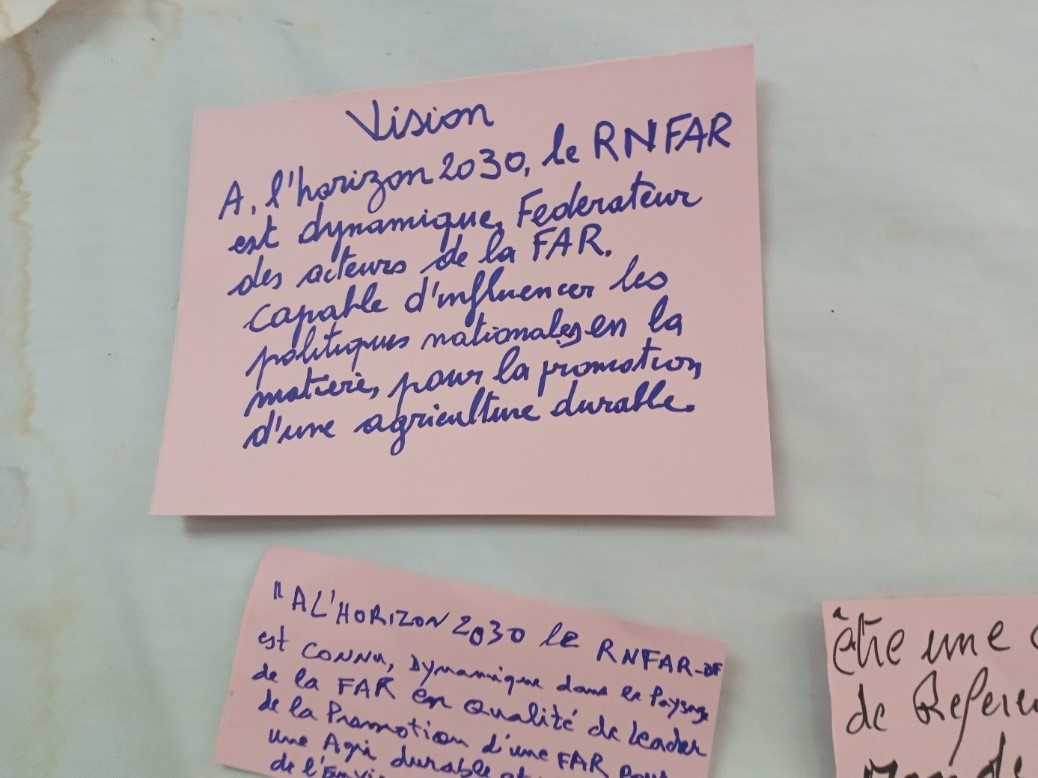 Vision
A, l'horizon 2030, le RNFAR
est dynamique, Federateur
des acteurs de la FAR.
capable d'influencer les
politiques nationales en la
matière, pour la promotion
d'une agriculture durable.
"A L'HORIZON 2030 LE RNFAR-DF
est CONNU, Dynamique dans le Paysage
de la FAR en Qualité de Leader
de la Promotion d'une FAR Pour
une Agri durable
de l'Envi
être une
de Refere